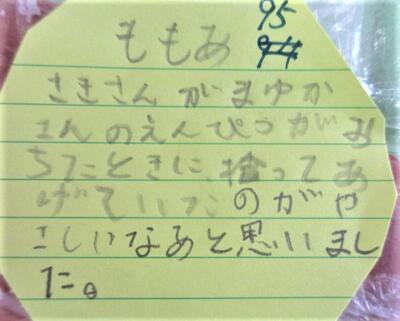 95
94
ももあ
さきさん がまゆか
さんのえんぴつがお
ちたときに拾ってあ
げていたのがや
さしいなあと思いまし
た。